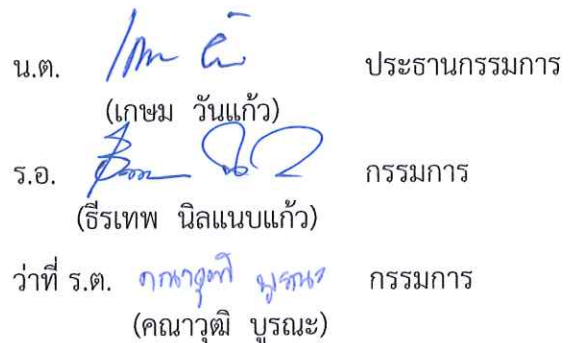 น.ต. ประธานกรรมการ
(เกษม วันแก้ว)
ร.อ. กรรมการ
(ธีรเทพ นิลแนบแก้ว)
ว่าที่ ร.ต. คณาวุฒิ บูรณะ กรรมการ
(คณาวุฒิ บูรณะ)